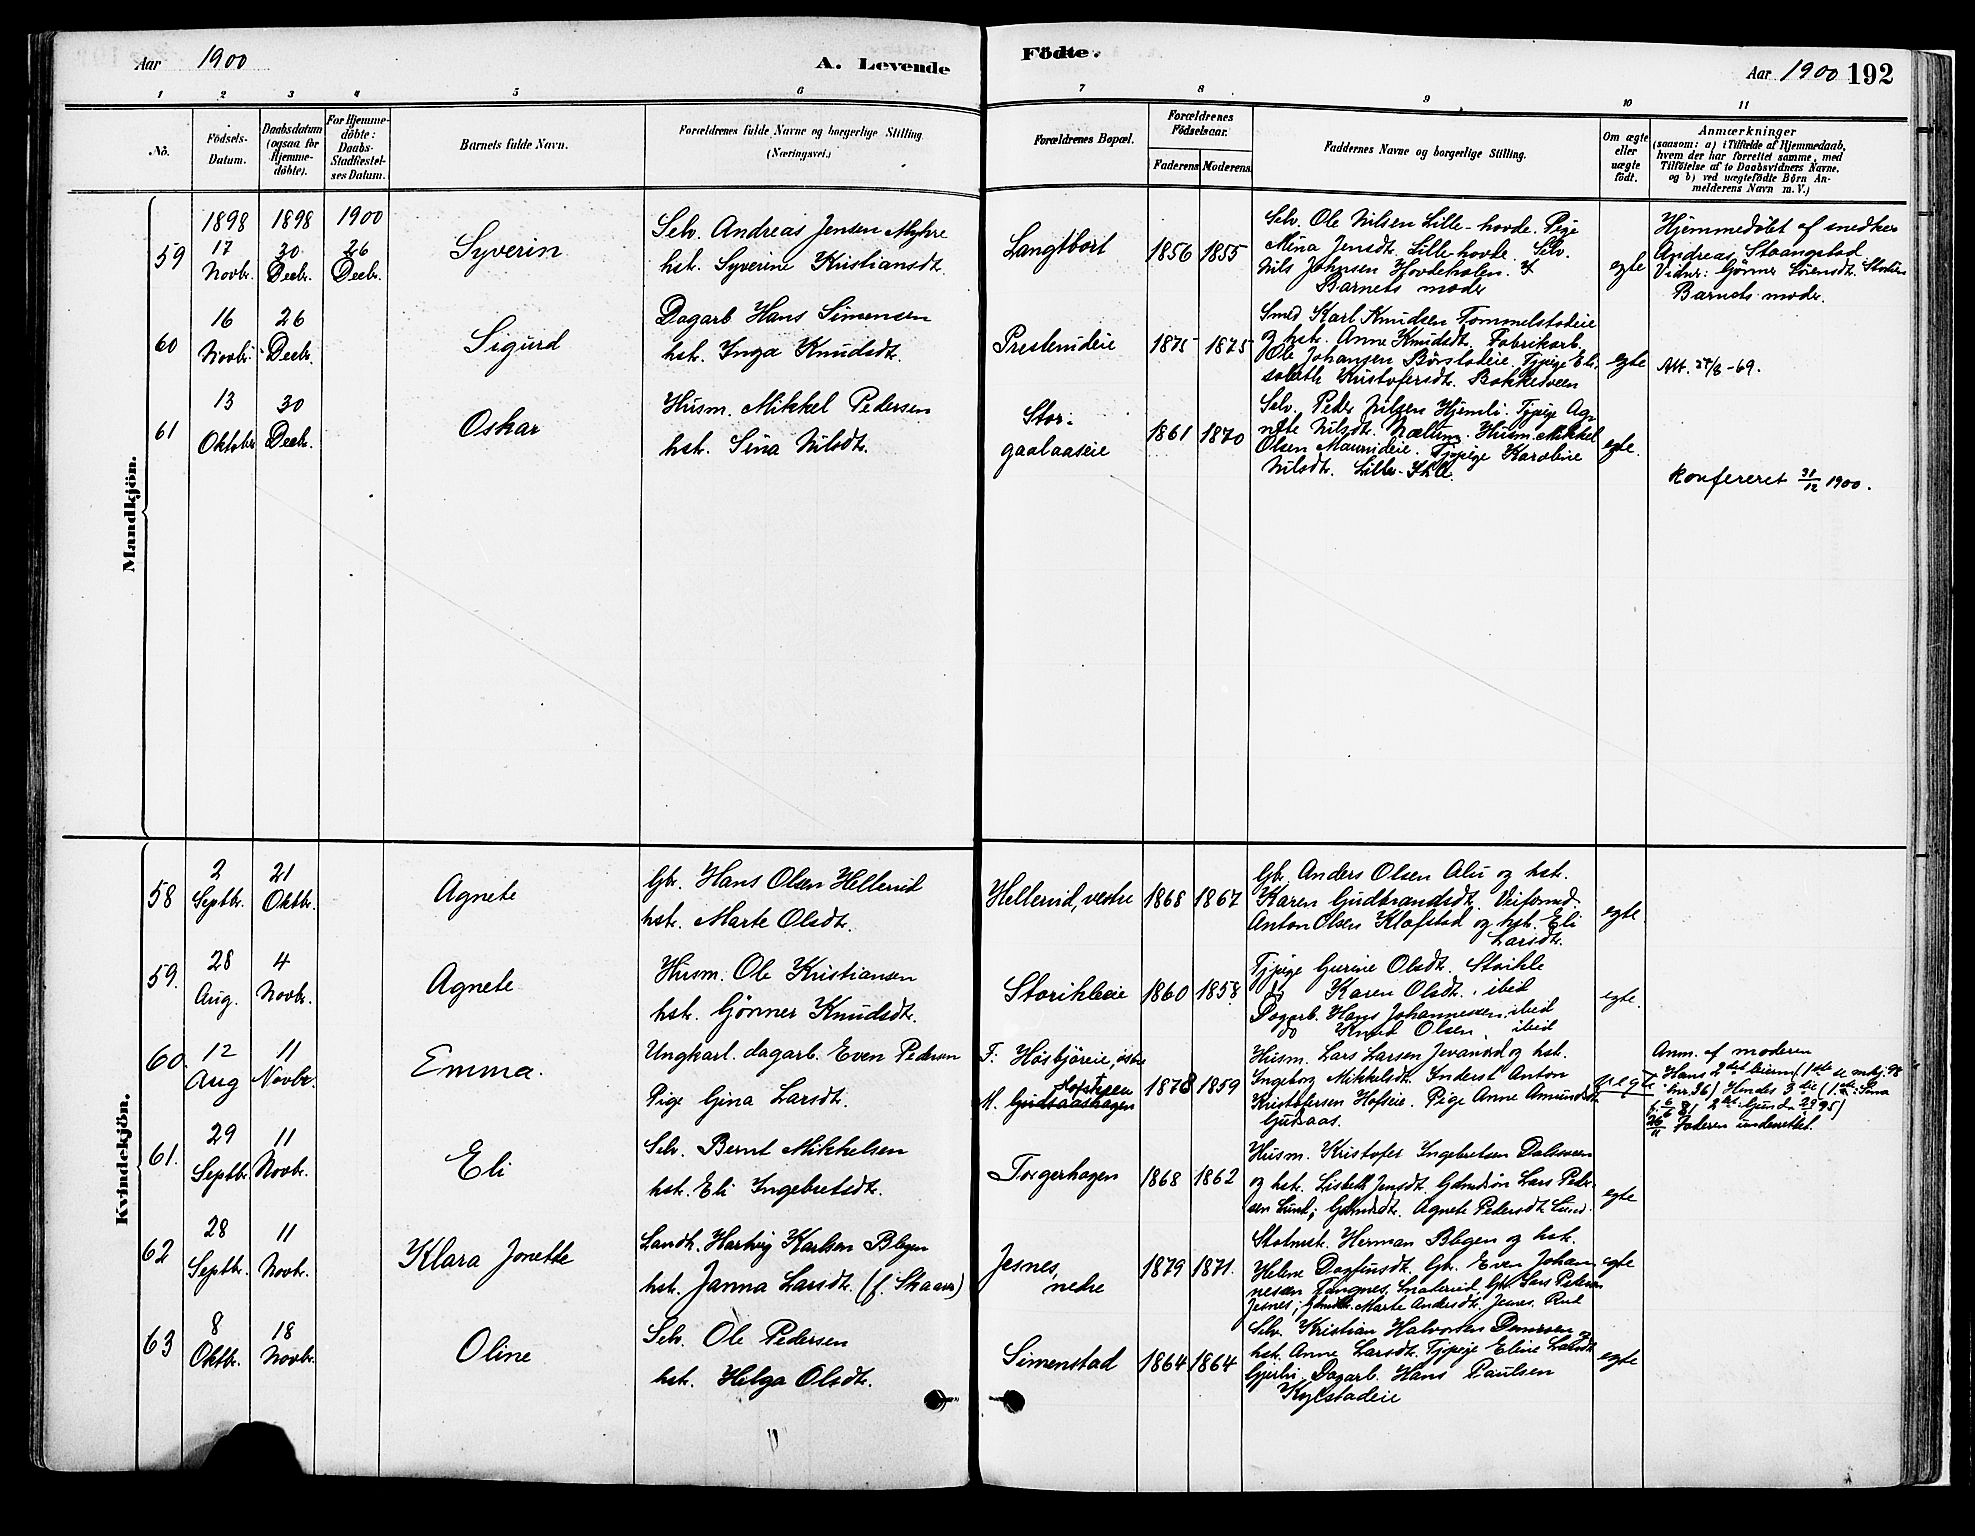 Aar 1900
A. Levende
Födte.
Aar 1900 192
1 2 3 4 5 6 7 8 9 10 11
No.
Födsels-
Datum.
Daabsdatum
(ogsaa for
Hjemme-
döbte).
For Hjemme-
döbte:
Daabs-
Stadfæstel-
ses Datum.
Barnets fulde Navn.
Forældrenes fulde Navne og borgerlige Stilling
(Næringsvei.)
Forældrenes Bopæl.
Forældrenes
Födselsaar.
Faderens Moderens
Faddernes Navne og borgerlige Stilling.
Om ægte
eller
uægte
født.
Anmærkninger
(saasom: a) i Tilfælde af Hjemmedaab,
hvem der har forrettet samme, med
Tilföielse af to Daabsvidners Navne,
og b) ved uægtefødte Börn An-
melderens Navn m. V.)
Mandkjön.
59
1898
17
Novbr.
1898
30
Decbr.
1900
26
Decbr.
Syverin
Selv. Andreas Jensen Myhre
hst. Syverine Kristiansdt.
Langtbort
1856 1855
Selv. Ole Nilsen Lille-hovde. Pige
Mina Jensdt. Lillehovde. Selv.
Nils Johnsen Hovdeholen. &
Barnets moder
egte
Hjemmedøbt af snedker
Andreas Staangstad
Vidner: Gønner Sörensdt.
Barnets moder.
60
16
Novbr.
26
Decbr.
Sigurd
Dagarb. Hans Simensen
hst. Inga Knudsdt.
Prestenideie
1875 1875
Smed Karl Knudsen Tommelstadeie
og hst. Anne Knudsdt. Fabrikarb.
Ole Johansen Børstadeie. Tjpige Eli-
sabeth Kristofersdt. Bakkesveen
egte
61
13
Oktober
30
Decbr.
Oskar
Husm. Mikkel Pedersen
hst. Sina Nilsdt.
Stor-
gaalaaseie
1861 1870
Selv. Peder Nilsen Hjemli. Tjpige Ag-
nete Nilsdt. Næline. Husm. Mikkel
Olsen Maurudeie. Tjpige Karoline
Nilsdt. Lille-
egte.
Konfereret 31/12 1900.
Kvindekjön.
58
2
Septbr.
21
Oktbr.
Agnete
Gbr. Hans Olsen Hellerud
hst. Marte Olsdt.
Hellerud, vestre
1868 1867
Gbr. Anders Olsen Alu og hst.
Karen Gudbrandsdt. Veiformd.
Anton Olsen Klafstad og hst. Eli
Larsdt.
egte.
59.
28
Aug.
4
Novbr.
Agnete
Husm. Ole Kristiansen
hst. Gönner Knudsdt.
Storihleie
1860 1858
Tjpige Gurine Olsdt. Storihle
do Karen Olsdt. ibid
Dagarb. Hans Johannessen, ibid
do Knud Olsen ibid
egte.
60.
12
Aug
11
Novbr.
Emma.
Ungkarl. dagarb. Even Pedersen
Pige Gina Larsdt.
F: Høsbjøreie, østre
M. Gudsaashagen
1878 1859
Husm. Lars Larsen Jevanord og hst.
Ingeborg Mikkelsdt. Inderst Anton
Kristofersen Hofseie. Pige Anne Amundsdt
Gudsaas.
uegte
Anm. af moderen
Faderen underrettet.
61.
29
Septbr.
11
Novbr.
Eli
Selv. Bernt Mikkelsen
hst. Eli Ingebretsdt.
Torgerhagen
1868 1862
Husm. Kristofer Ingebretsen Dalsveen
og hst. Lisbeth Jensdt. Gdmdsön Lars Peder-
sen Lund; Gdmdsdt. Agnete Pedersdt. Lund.
egte
62
28
Septbr.
11
Novbr.
Klara Jonette
Landh. Hartvig Karlsen Blegen
hst. Janna Larsdt. (f. Skaare)
Jesnes,
nedre
1879 1871.
Herman Blegen og hst.
Helene Dagfinsdt. Gbr. Even Johan-
nesen Tangnes, Gbr. Lars Pedersen
Jesnes; Marte Andersdt. Jesnes. Rud
egte
63
8
Oktbr.
18
Novbr.
Oline
Selv. Ole Pedersen
hst. Helga Olsdt.
Simenstad
1864 1864
Selv. Kristian Halvorsen og
hst. Anne Larsdt. Tjpige Eline Larsdt
Gjerlu, Dagarb. Hans Paulsen
Kylstadeie
egte